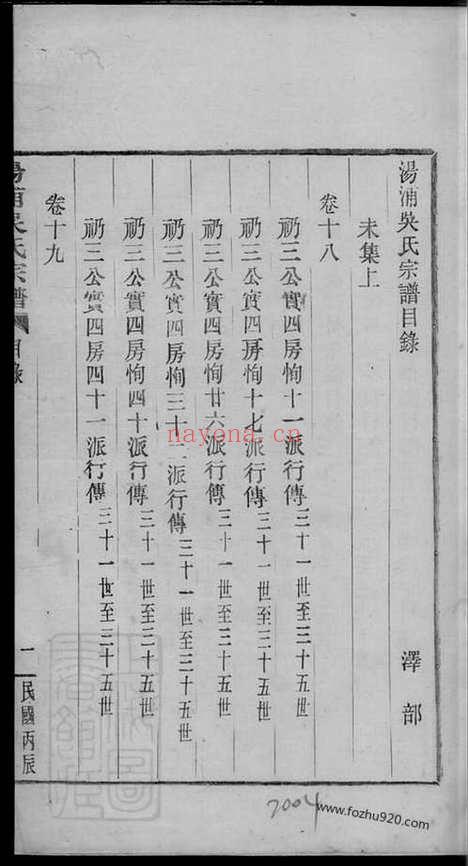 湯浦吳氏宗譜目錄 澤部
未集上
卷十八
礽三公實四房恂十一派行傳 三十一世至三十五世
礽三公實四房恂十七派行傳 三十一世至三十五世
礽三公實四房恂廿六派行傳 三十一世至三十五世
礽三公實四房恂三十二派行傳 三十一世至三十五世
礽三公實四房恂四十派行傳 三十一世至三十五世
礽三公實四房四十一派行傳 三十一世至三十五世
卷十九
湯浦吳氏宗譜 目錄 一 民國丙辰
nayona.cn
2004
www.fozhu920.com